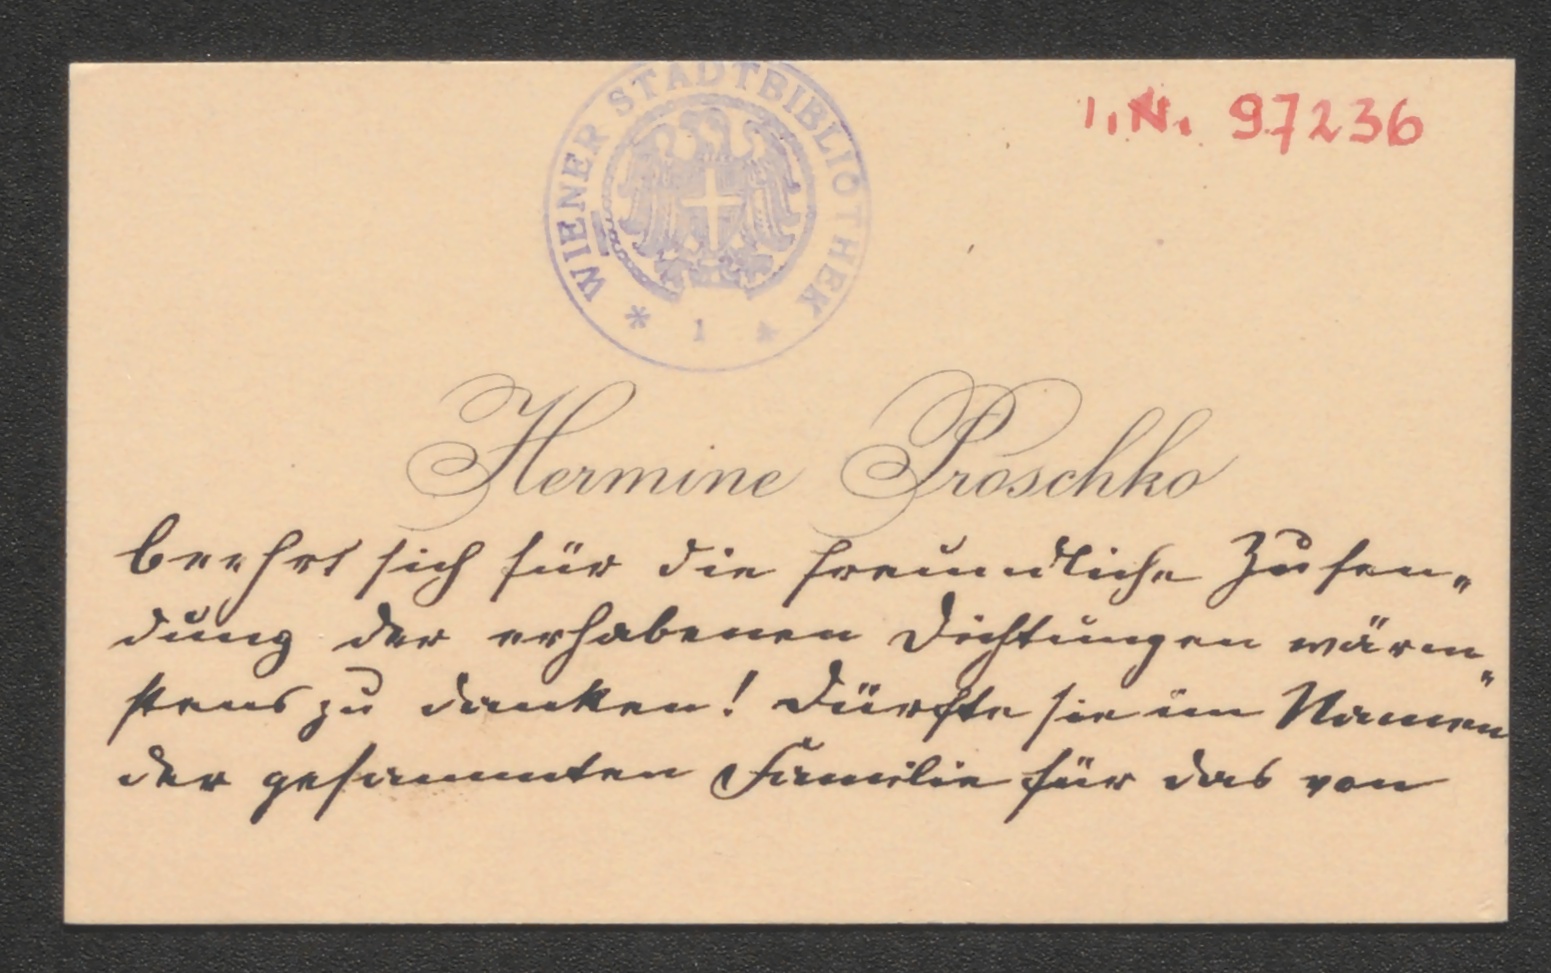 WIENER STADTBIBLIOTHEK
* 1 *
I.N. 97236
Hermine Proschko
beehrt sich für die freundliche Zusen„
dung der erhabenen Dichtungen wärm„
stens zu danken! Dürfte sie im Namen
der gesammten Familie für das von